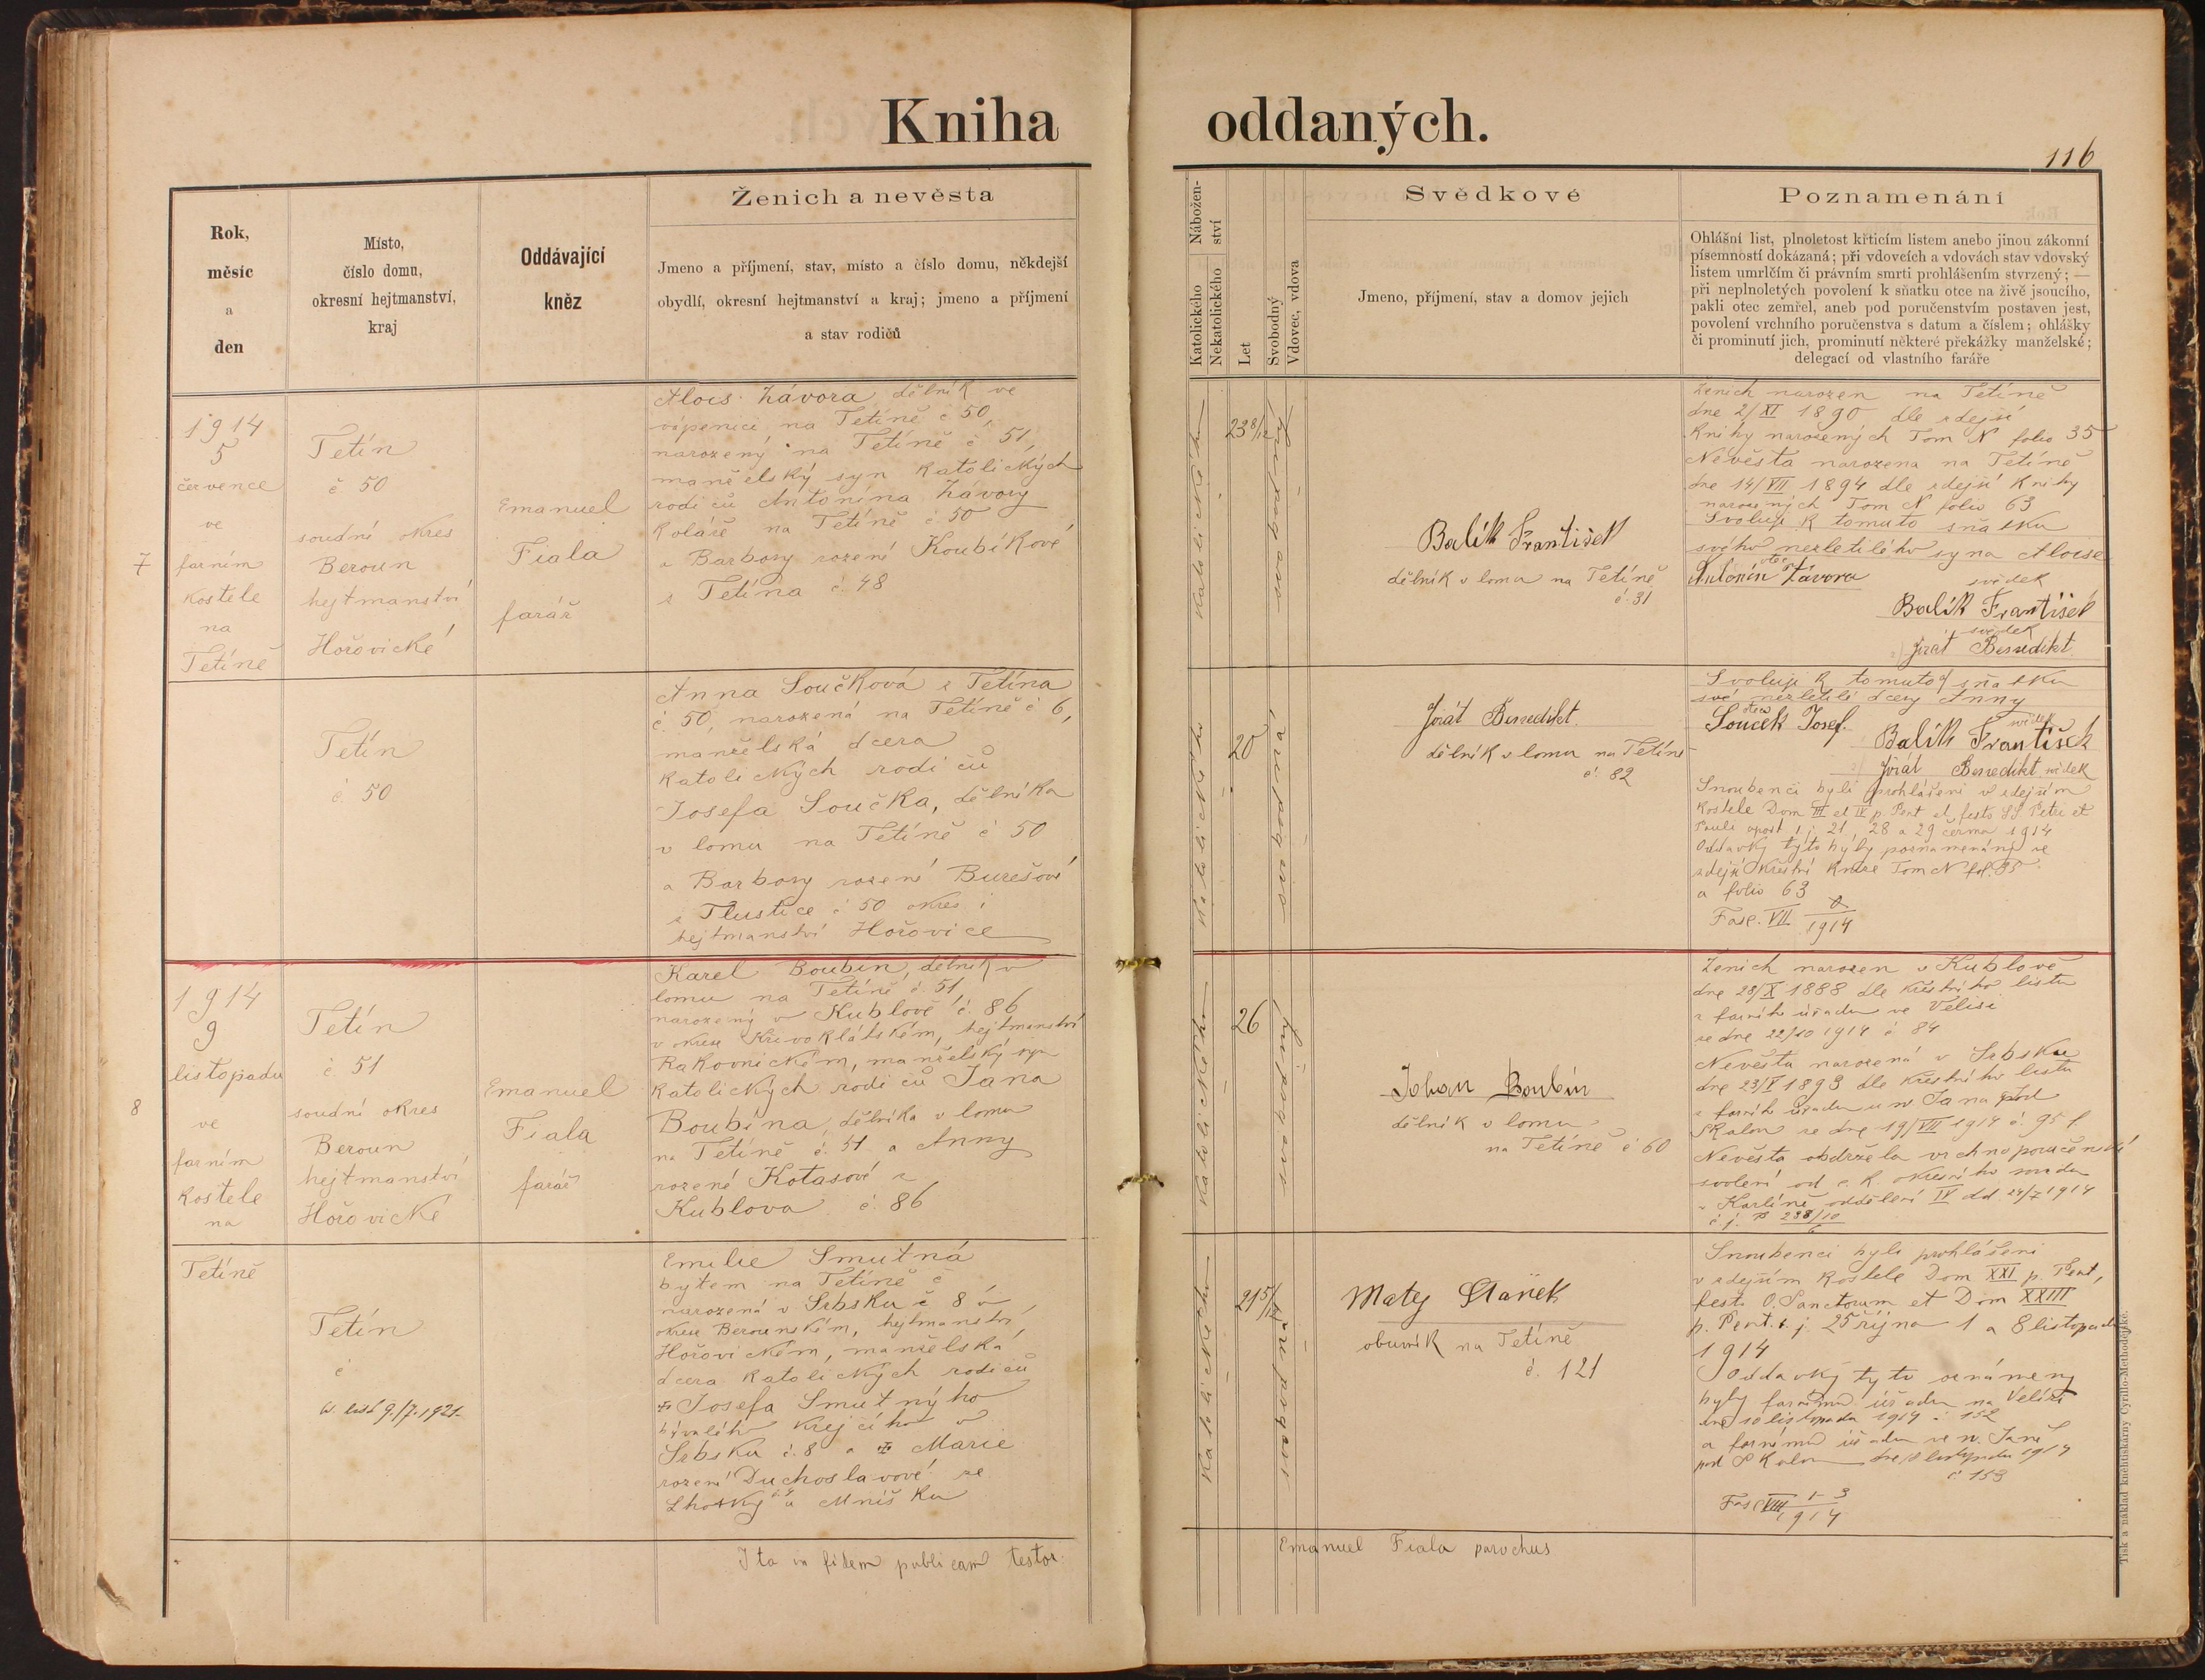 Kniha oddaných.
116
Rok,
měsíc
a
den
Místo,
číslo domu,
okresní hejtmanství,
kraj
Oddávající
kněz
Ženich a nevěsta
Jmeno a příjmení, stav, místo a číslo domu, někdejší
obydlí, okresní hejtmanství a kraj; jmeno a příjmení
a stav rodičů
Nábožen-
ství
Katolického
Nekatolického
Let
Svobodný
Vdovec, vdova
Svědkové
Jmeno, příjmení, stav a domov jejich
Poznamenání
Ohlášní list, plnoletost křticím listem anebo jinou zákonní
písemností dokázaná; při vdovcích a vdovách stav vdovský
listem umrlčím či právním smrti prohlášením stvrzený; —
při neplnoletých povolení k sňatku otce na živě jsoucího,
pakli otec zemřel, aneb pod poručenstvím postaven jest,
povolení vrchního poručenstva s datum a číslem; ohlášky
či prominutí jich, prominutí některé překážky manželské;
delegací od vlastního faráře
7
1914
5
července
ve
farním
kostele
na
Tetíně
Tetín
č 50
soudní okres
Beroun
hejtmanství
Hořovické
Emanuel
Fiala
farář
Alois Závora, dělník ve
vápenici na Tetíně č 50,
narozený na Tetíně č 51,
manželský syn katolických
rodičů Antonína Závory
koláře na Tetíně č 50
a Barbory rozené Koubíkové
z Tetína č. 48
katolického
23 8/12
svobodný
Balík František
dělník v lomu na Tetíně
č. 31
Ženich narozen na Tetíně
dne 2/XI 1890 dle zdejší
knihy narozených Tom N folio 35
Nevěsta narozena na Tetíně
dne 14/VII 1894 dle zdejší knihy
narozených Tom N folio 63
Svoluji k tomuto sňatku
svého nezletilého syna Aloise
otec
Antonín Závora
svědek
Balík František
svědek
Jirát Benedikt
Tetín
č. 50
Anna Součková z Tetína
č. 50, narozená na Tetíně č 6,
manželská dcera
katolických rodičů
Josefa Součka, dělníka
v lomu na Tetíně č 50
a Barbory rozené Burešové
z Tlustice č 50 okres i
hejtmanství Hořovice
katolického
20
svobodná
Jirát Benedikt
dělník v lomu na Tetíně
č. 82
Svoluji k tomuto sňatku
své nezletilé dcery Anny
otec
Souček Josef.
svědek
Balík František
Jirát Benedikt svědek
Snoubenci byli prohlášeni v zdejším
kostele Dom III et IV p. Pent et festo SS Petri et
Pauli apost t. j. 21, 28 a 29 června 1914
Oddavky tyto byly poznamenány ve
zdejší křestní knize Tom N fol. 35
a folio 63
Fasc. VII
1914
8
1914
9
listopadu
ve
farním
kostele
na
Tetíně
Tetín
č. 51
soudní okres
Beroun
hejtmanství
Hořovické
Emanuel
Fiala
farář
Karel Boubín, dělník v
lomu na Tetíně č. 51,
narozený v Kublově č. 86
v okrese Křivoklátském, hejtmanství
Rakovnickém, manželský syn
katolických rodičů Jana
Boubína, dělníka v lomu
na Tetíně č. 51 a Anny
rozené Kotasové z
Kublova č. 86
katolického
26
svobodný
Johan Boubín
dělník v lomu
na Tetíně č 60
Ženich narozen v Kublově
dne 28/X 1888 dle křestního listu
z farního úřadu ve Velisi
ze dne 22/10 1914 č 84
Nevěsta narozená v Srbsku
dne 23/V 1893 dle křestního listu
z farního úřadu u sv. Jana pod
Skalou ze dne 19/VII 1914 č. 95 f.
Nevěsta obdržela vrchnoporučenské
svolení od c. k. okresního soudu
v Karlíně oddělení IV dd 24/7 1914
č j. P 238/10
6
Tetín
č
W. list 9./7. 1921.
Emilie Smutná
bytem na Tetíně č
narozená v Srbsku č 8 v
okrese Berounském, hejtmanství
Hořovickém, manželská
dcera katolických rodičů
Josefa Smutného
bývalého krejčího v
Srbsku č. 8 a Marie
rozené Duchoslavové ze
Lhotky u Mníšku
katolického
21 5/12
svobodná
Matej Staněk
obuvník na Tetíně
č. 121
Snoubenci byli prohlášeni
v zdejším kostele Dom XXI p. Pent,
festo O. Sanctorum et Dom XXIII
p. Pent. t. j. 25 října 1 a 8 listopadu
1914
Oddavky tyto oznámeny
byly farnímu úřadu na Velízi
dne 10 listopadu 1914 č 152
a farnímu úřadu ve sv. Janě
pod Skalou dne listopadu 1914
č 153
Fasc VIII 1-3
1914
Ita in fidem publicam testor.
Emanuel Fiala parochus
Tisk a náklad knihtiskárny Cyrillo-Methodějské.